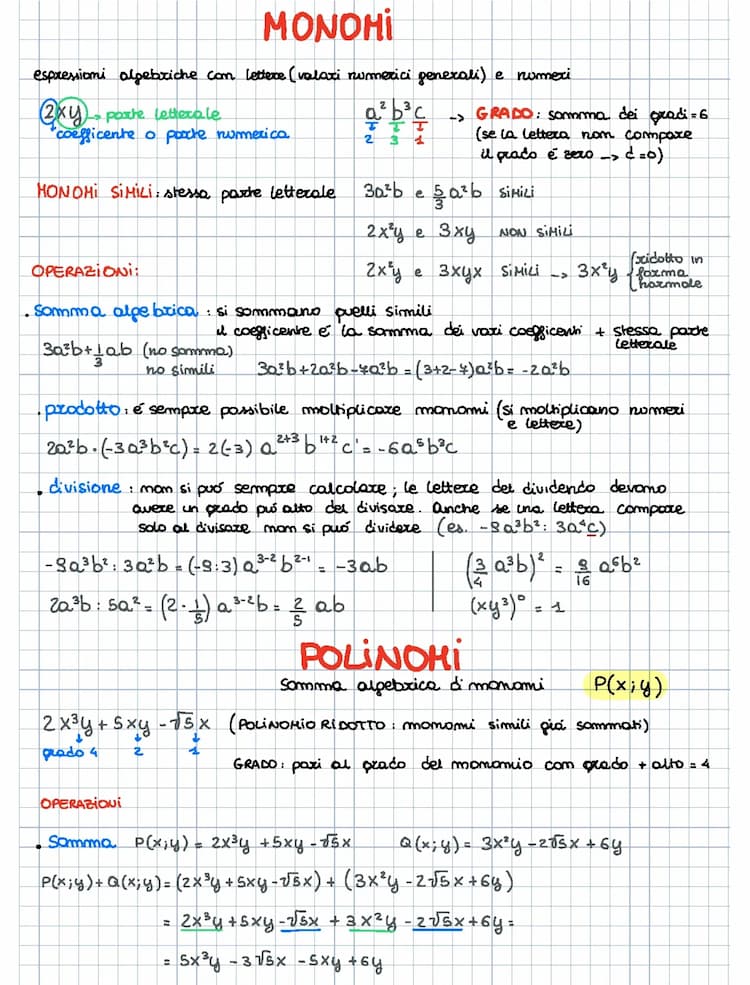 MONOMI
espressioni algebriche con lettere (valori numerici generali) e numeri
2xy → parte letterale
coefficente o parte numerica
a²b³c → GRADO: somma dei gradi = 6
2 3 1
(se la lettera non compare
il grado é zero → d=0)
MONOMI SIMILI: stessa parte letterale
3a²b e 5/3 a²b SIMILI
2x²y e 3xy NON SIMILI
OPERAZIONI:
2x²y e 3xyx SIMILI → 3x²y {ridotto in forma normale
. somma algebrica : si sommano quelli simili
il coefficente é la somma dei vari coefficenti + stessa parte letterale
3a²b+1/3ab (no somma)
no simili
3a²b+2a²b-7a²b = (3+2-7)a²b = -2a²b
. prodotto: é sempre possibile moltiplicare monomi (si moltiplicano numeri
e lettere)
2a²b · (-3a³b²c) = 2(-3) a²⁺³ b¹⁺² c¹ = -6a⁵b³c
. divisione : non si puó sempre calcolare ; le lettere del dividendo devono
avere un grado piú alto del divisore. Anche se una lettera compare
solo al divisore non si puó dividere (es. -9a³b² : 3a⁴c)
-9a³b² : 3a²b = (-9:3) a³⁻² b²⁻¹ = -3ab
(3/4 a³b)² = 9/16 a⁶b²
2a³b : 5a² = (2 · 1/5) a³⁻²b = 2/5 ab
(xy³)⁰ = 1
POLINOMI
somma algebrica di monomi P(x;y)
2x³y + 5xy - √5x (POLINOMIO RIDOTTO : monomi simili giá sommati)
grado 4 2 1
GRADO: pari al grado del monomio con grado + alto = 4
OPERAZIONI
. Somma P(x;y) = 2x³y + 5xy - √5x Q(x;y) = 3x²y - 2√5x + 6y
P(x;y) + Q(x;y) = (2x³y + 5xy - √5x) + (3x²y - 2√5x + 6y)
= 2x³y + 5xy - √5x + 3x²y - 2√5x + 6y =
= 5x³y - 3√5x - 5xy + 6y